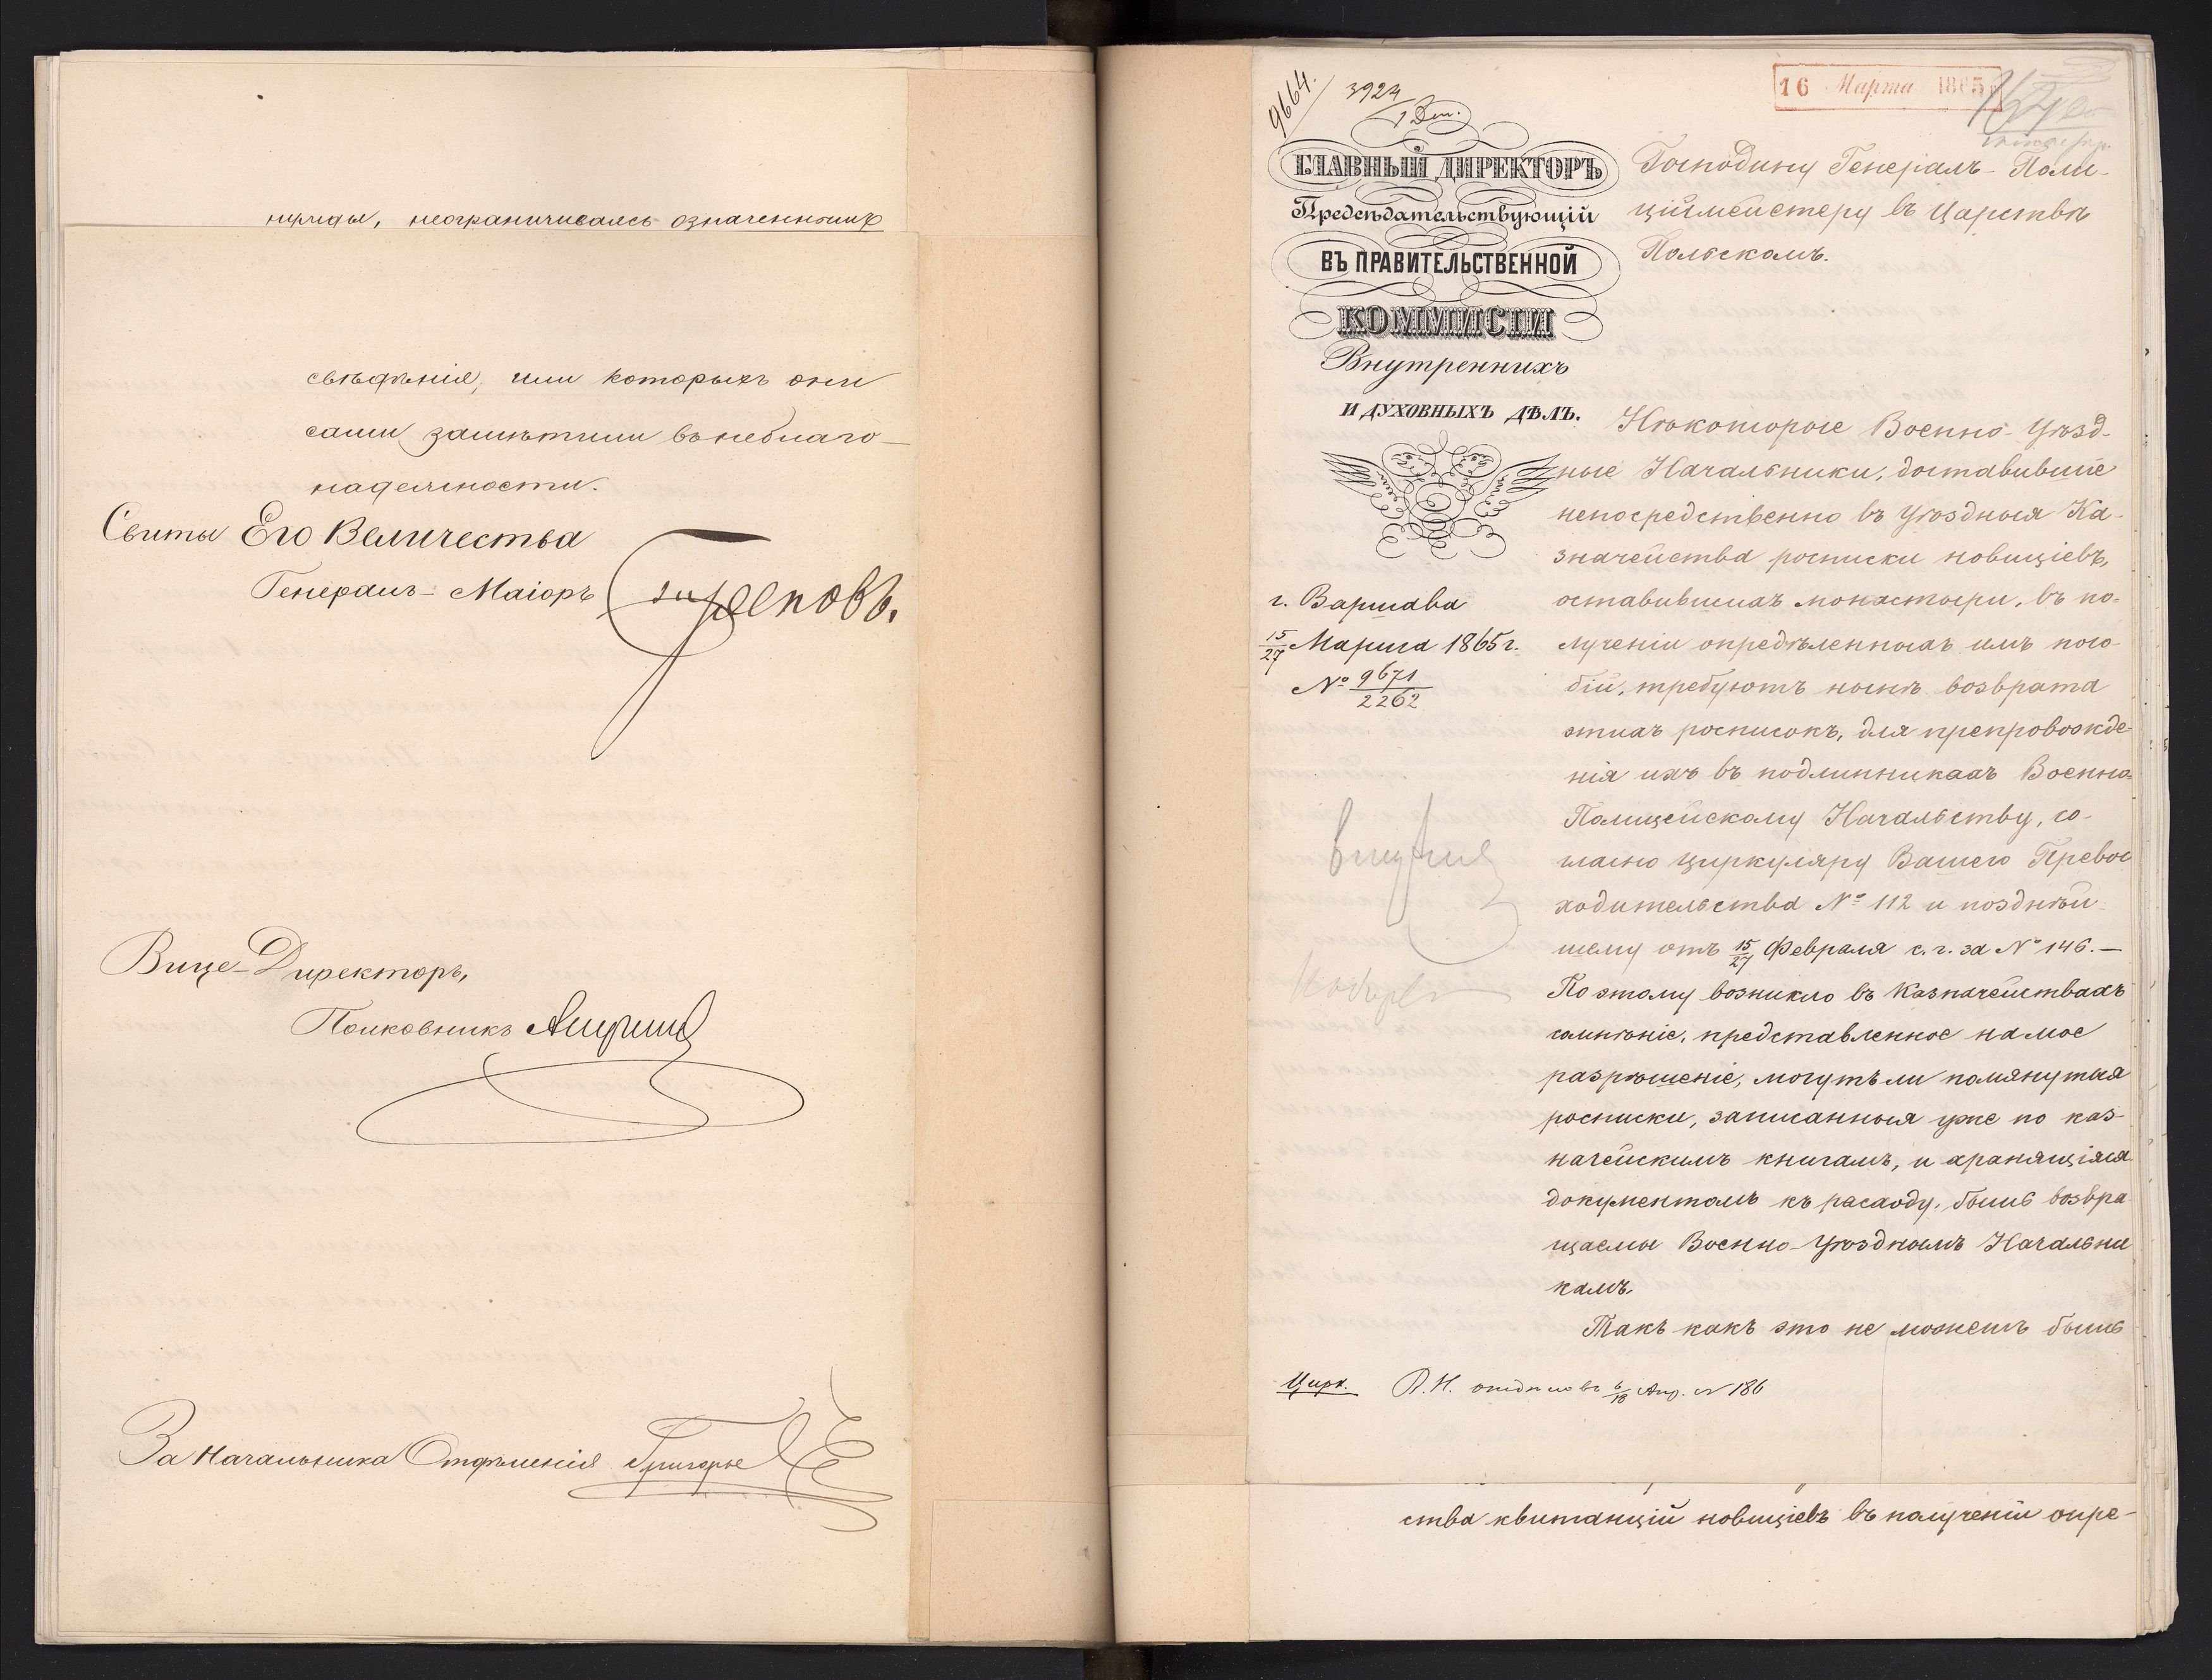 нужды, неограничиваясь означеннымъ
свѣдѣнія, или которыхъ они
сами замѣтили въ неблаго-
надежности.
Свиты Его Величества
Генералъ-Маіоръ
Вице-Директоръ,
Полковникъ
За Начальника Отдѣленія Григорье
9664.
3924
1 Дек.
16 Марта 1865
ГЛАВНЫЙ ДИРЕКТОРЪ
Предсѣдательствующій
ВЪ ПРАВИТЕЛЬСТВЕННОЙ
КОММИСІИ
Внутреннихъ
И ДУХОВНЫХЪ ДѢЛЪ.
г. Варшава
15/27 Марта 1865 г.
№ 9671/2262
Господину Генералъ-Поли-
цiймейстеру въ Царствѣ
Польскомъ.
Нѣкоторые Военно-Уѣзд-
ные Начальники, доставившіе
непосредственно въ Уѣздныя Ка-
значейства росписки новиціевъ,
оставившихъ монастыри, въ по-
лученіи опредѣленныхъ имъ посо-
бій, требуютъ нынѣ возврата
этихъ росписокъ, для препровожде-
нія ихъ въ подлинникахъ Военно-
Полицейскому Начальству, со-
гласно циркуляру Вашего Превос
ходительства № 112 и позднѣй-
шему отъ 15/27 Февраля с. г. за № 146. —
Поэтому возникло въ Казначействахъ
сомнѣніе, представленное на мое
разрѣшеніе, могутъ ли помянутыя
росписки, записанныя уже по каз-
начейскимъ книгамъ, и хранящіяся
документомъ къ расходу, быть возвра
щаемы Военно-Уѣзднымъ Начальни
камъ.
Такъ какъ это не можетъ быть
Цирк. В. Н. отдѣловъ 6/18 Апр. N 186
ства квитанцій новиціевъ въ полученіи опре-